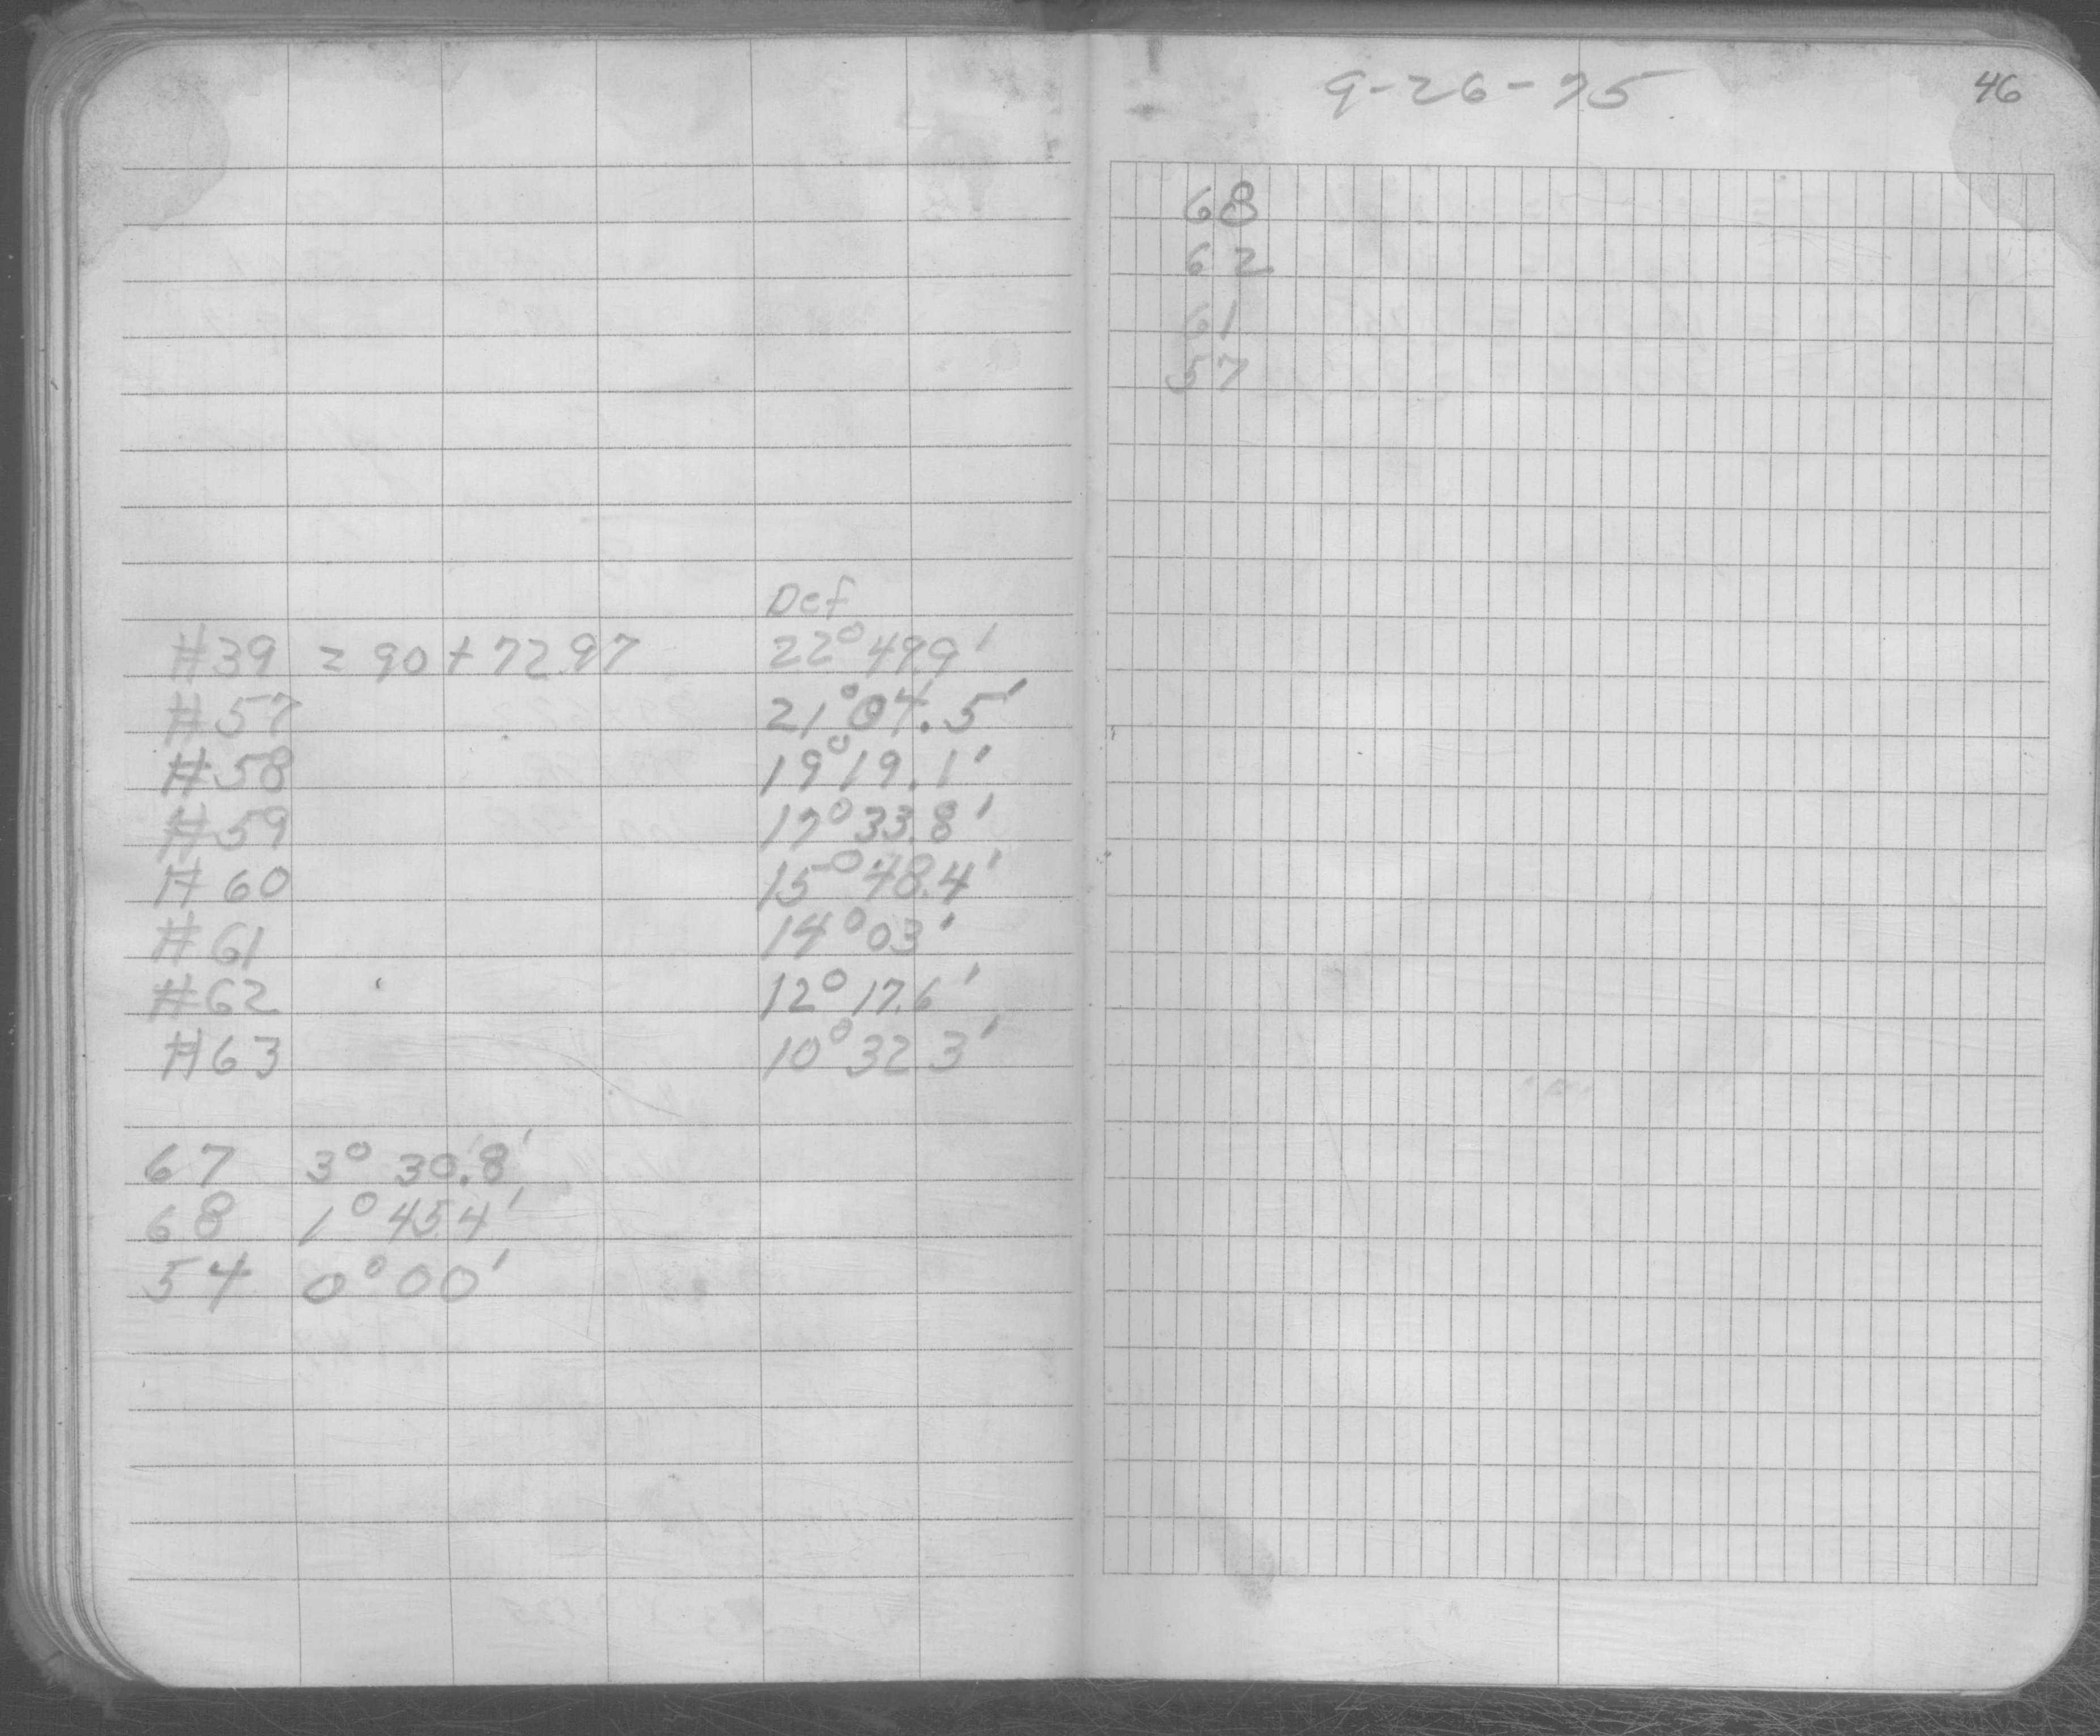 Def
#39 = 90 + 72.97 22° 49.9'
#57 21° 04.5'
#58 19° 19.1'
#59 17° 33.8'
#60 15° 48.4'
#61 14° 03'
#62 12° 17.6'
#63 10° 32.3'
67 3° 30.8'
68 1° 45.4'
54 0° 00'
9-26-75
46
68
62
61
57